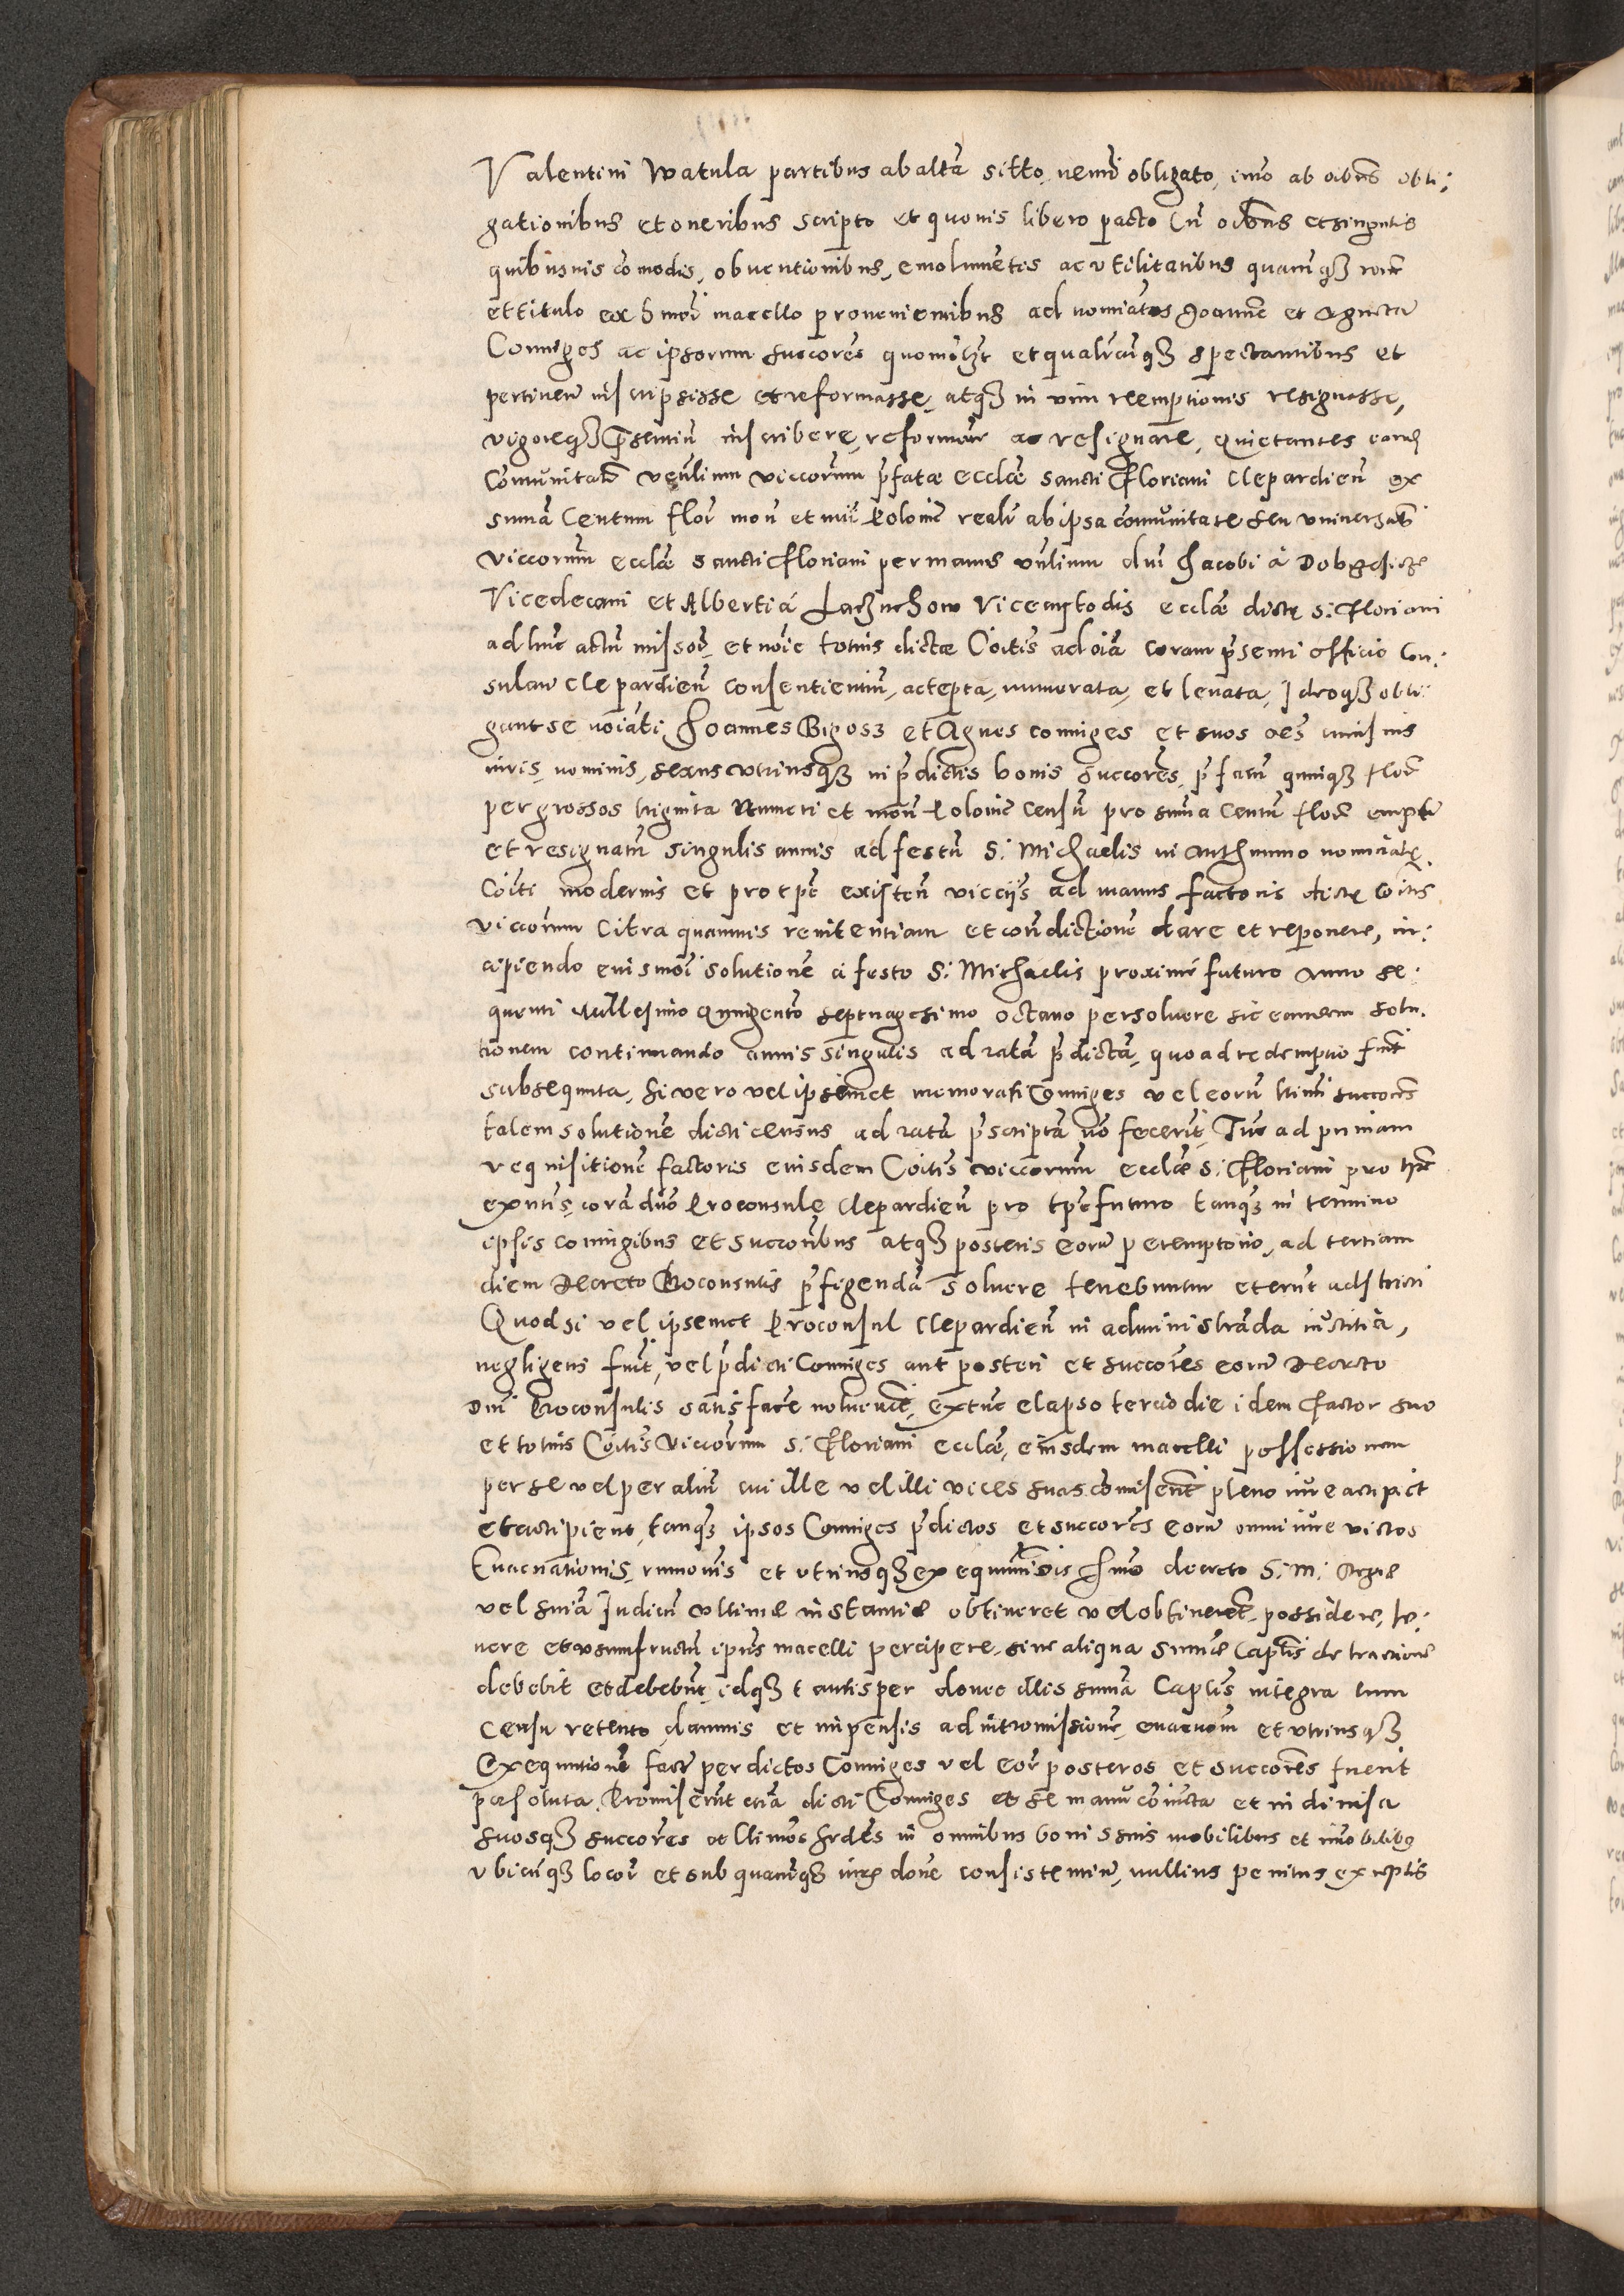 Valentini Watula partibus ab altã sitto, nemĩ obligato, imo ab oĩbus obli:
gationibus et oneribus scripto et quovis libero pacto Cũ oĩbus et singulis
quibusvis cõmodis, obventionibus, emolumẽtis ac utilitatibus quacũq3
et titulo ex hmõi macello provenientibus ad nomiatos Joannẽ et Agnetã
Coniuges ac ipsorum succores quomõlꝫt et qualr̃cũq3 spectantibus et
pertineñ inscripsisse et reformasse, atq3 in vim reemptionis resignasse,
vigoreq3 p̃sentiũ inscribere, reformare ac resignare, Quietantes eandẽ
Cõmunitatẽ veñlium viccorum p̃fatæ ecclæ Sancti Floriani Clepardieñ ex
sumã Centum floř moñ et nũi Poloniẽ realr̃ ab ipsa cõmunitate seu universatẽ
viccorum ecclæ Sancti Floriani per manus veñlium dñi Jacobi à
Vicedecani et Alberti á Vicecustodis ecclæ dictę S: Floriani
ad hũc actũ missoř, et noĩe totius dictæ Cõitis ad oĩa coram p̃senti officio Con:
sulari Clepardieñ consentientiũ, accepta, numerata, et levata, Idcoq3 obli:
gant se noĩati Joannes Bigosz et Agnes coniuges et suos oẽs cuiusvis
iuris, nominis, sexus utriusq3 in p̃dictis bonis succores, p̃fatũ quinq3 floř
per grossos triginta Numeri et moñ Poloniẽ Censũ pro suma Centũ floř emptũ
et resignatũ singulis annis ad festũ S: Michaelis in Arch nominatę
Cõiti modernis et pro tpẽ existeñ viccijs ad manus factoris dictę Cõitis
viccorum Citra quamvis renitentiam et cõndictionẽ dare et reponere, in:
cipiendo euismõi solutionẽ à festo S: Michaelis proximè futuro anno se:
quenti Millesimo Quingento septuagesimo octavo persolvere sic eandem solu:
tionem continuando annis singulis ad ratã p̃dictã, quoad redemptio fũit
subsequuta, Si vero vel ipsimet memorati Coniuges vel eorũ ltimi succores
talem solutionẽ dicti census ad ratã p̃scriptã nõ fecerĩt, Tũc ad primam
requisitionẽ factoris eiusdem Cõitis viccorum ecclæ S: Floriani pro tpẽ
exñtis, corã dño Proconsule Clepardieñ pro tpẽ futuro tanq3 in termino
ipsis coniugibus et succoribus atq3 posteris eorũ peremptorio, ad tertiam
diem Decreto Proconsulis p̃figendã Solvere tenebuntur et erũt adstricti
Quod si vel ipsemet Proconsul Clepardieñ in administrãda iustitia,
negligens fũit, vel p̃dicti Coniuges aut posteri et succores eorũ Decreto
Dñi Proconsulis satisfacẽ noluerĩt, extũc elapso tercio die idem Factor suo
et totius Cõitis Viccorum S: Floriani ecclæ, eiusdem macelli possessionem
per se vel per aliũ cui ille vel illi vices suas cõmiserĩt pleno iure accipiet
et accipient, tanq3 ipsos Coniuges p̃dictos et succores eorũ omni iure victos
Evacuationis, rumovis et utriusq3 exequutionis decreto S: M: Regiæ
vel suiã Iudicũ ultimæ instantiæ obtineret vel obtinerẽt, possidere, te:
nere et usumfructũ ipsius macelli percipere, sine aliqua sumæ Capitis detractionẽ
debebit et debebũt, idq3 tantisper donec illis sumã Capitis integra cum
Censu retento, damnis et impensis ad intromissionẽ, evacuoẽm et utriusq3
Exequutionẽ factũ per dictos Coniuges vel eoř posteros et succores fuerit
persoluta. Promiserũt etiã dicti Coniuges et se manu cõiuncta et indivisa
suosq3 succores et ltimos hrdẽs in omnibus bonis suis mobilibus et imobilibꝯ
ubicũq3 locoř et sub quacũq3 iurisdoñe consistentiũ, nullius penitus exceptis